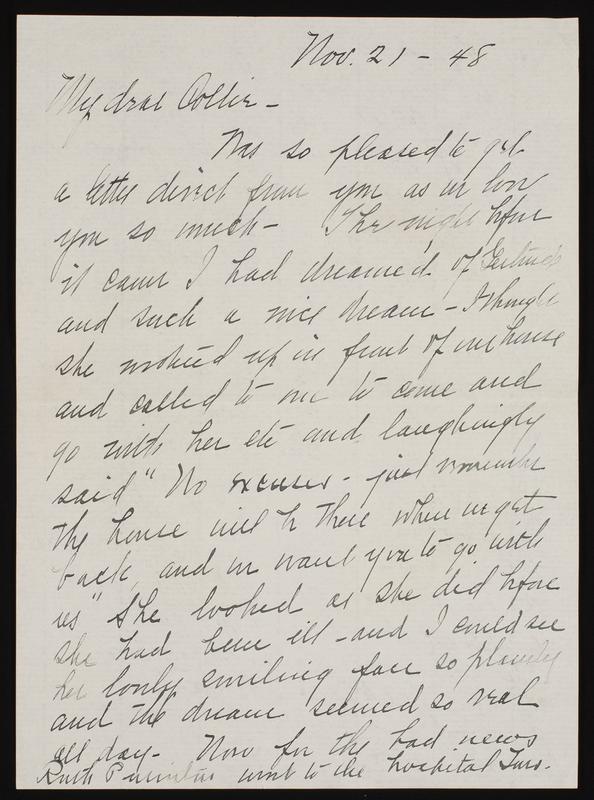 Nov. 21 - 48
My dear Collier -
Was so pleased to get
a letter direct from you as we love
you so much - The night before
it came I had dreamed of Gertrude
and such a nice dream - I thought
she motored up in front of our house
and called to me to come and
go with her etc and laughingly
said "No excuses - just remember
the house will be there when we get
back, and we want you to go with
us" She looked as she did before
she had been ill - and I could see
her lovely smiling face so plainly
and the dream seemed so real
all day - Now for the bad news
Ruth went to the hospital Tues.